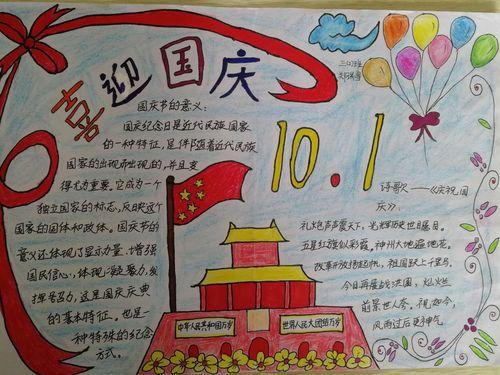 喜迎国庆
三(2)班
国庆节的意义:
国庆纪念日是近代民族国家
的一种特征,是伴随着近代民族
国家的出现而出现的,并且变
得尤为重要。它成为一个
独立国家的标志,反映这个
国家的国体和政体。国庆节的
意义还体现了显示力量、增强
国民信心,体现凝聚力,发
挥号召力,这是国庆庆典
的基本特征。也是一
种特殊的纪念
方式。
10.1
诗歌——《庆祝国
庆》
礼炮声声震天下,光辉历史世瞩目。
五星红旗似彩霞,神州大地遍地花。
改革开放扬起帆,祖国跃上千里马。
今日再度战洪图,灿灿
前景世人夸。祝如今,
风雨过后更神气
中华人民共和国万岁
世界人民大团结万岁